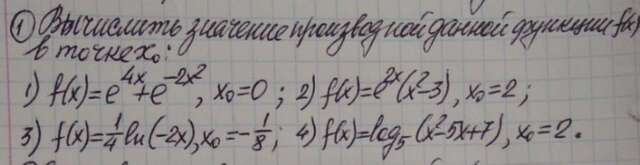 ① Вычислить значение производной данной функции f(x)
в точке x₀:
1) f(x)=e^{4x}+e^{-2x²}, x₀=0; 2) f(x)=e^{2x}(x²-3), x₀=2;
3) f(x)=1/4 ln(-2x), x₀=-1/8; 4) f(x)=log₅(x²-5x+7), x₀=2.